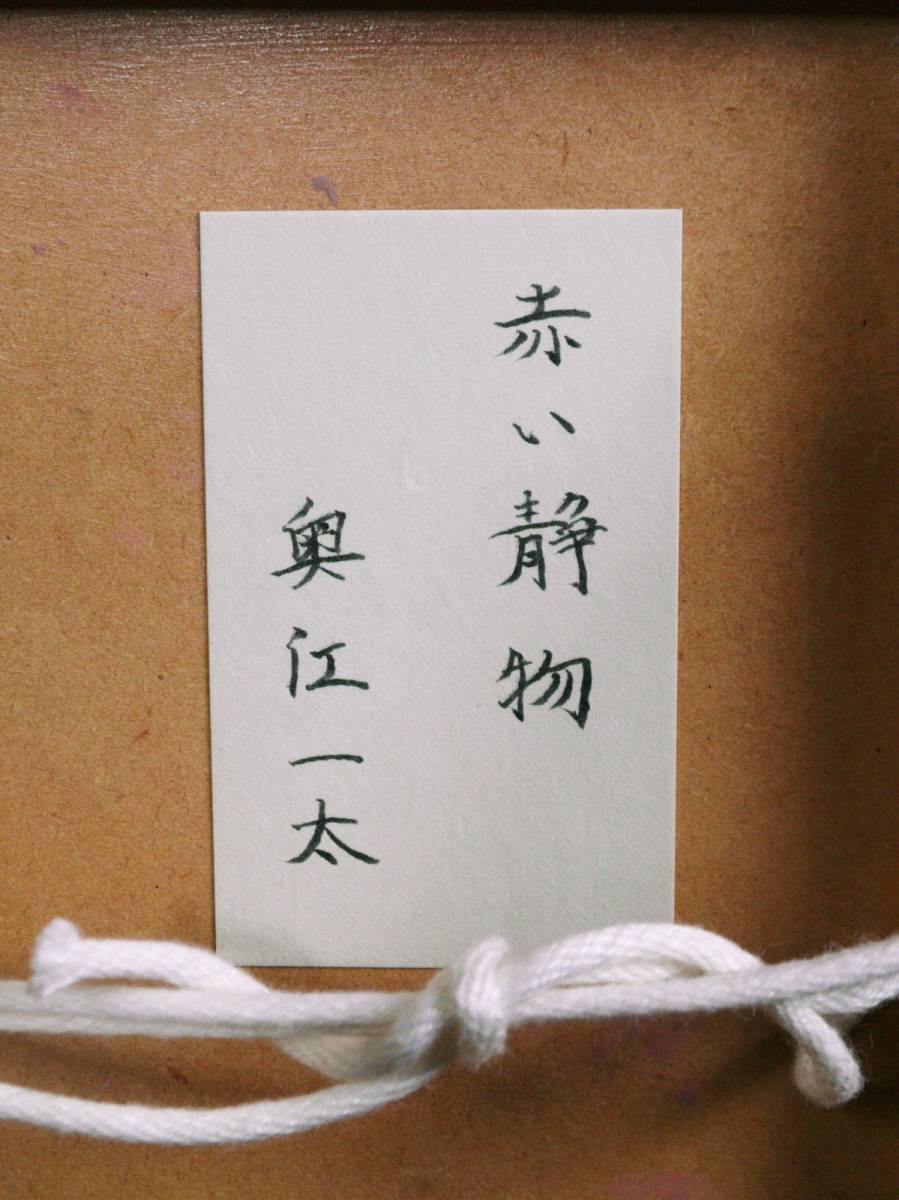 赤い静物
奥江一太